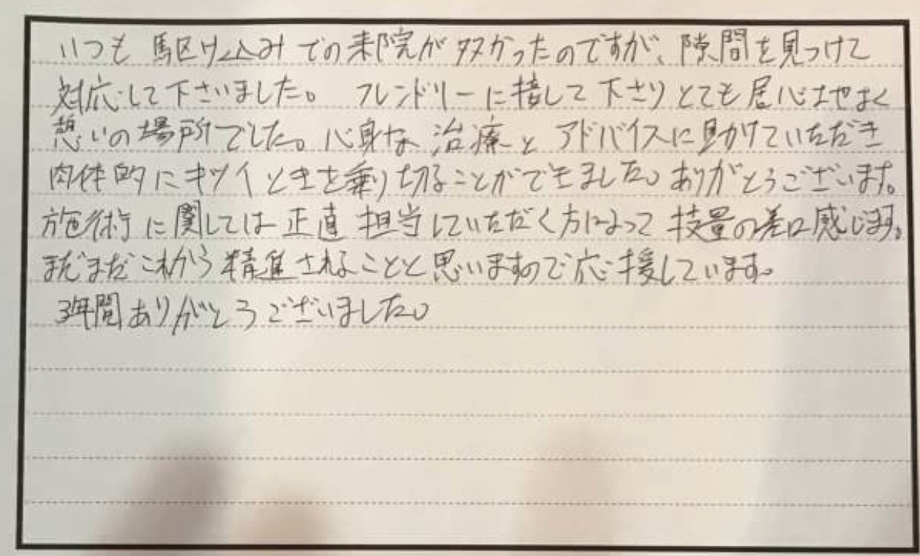 いつも 駆け込みでの来院が多かったのですが、隙間を見つけて
対応して下さいました。 フレンドリーに接して下さりとても居心地よく
憩いの場所でした。心身な 治療と アドバイスに助けていただき
肉体的にキツイときを乗り切ることができました。ありがとうございます。
施術に関しては正直 担当していただく方によって 技量の差は感じます。
まだまだこれから精進されることと思いますので応援しています。
3年間ありがとうございました。